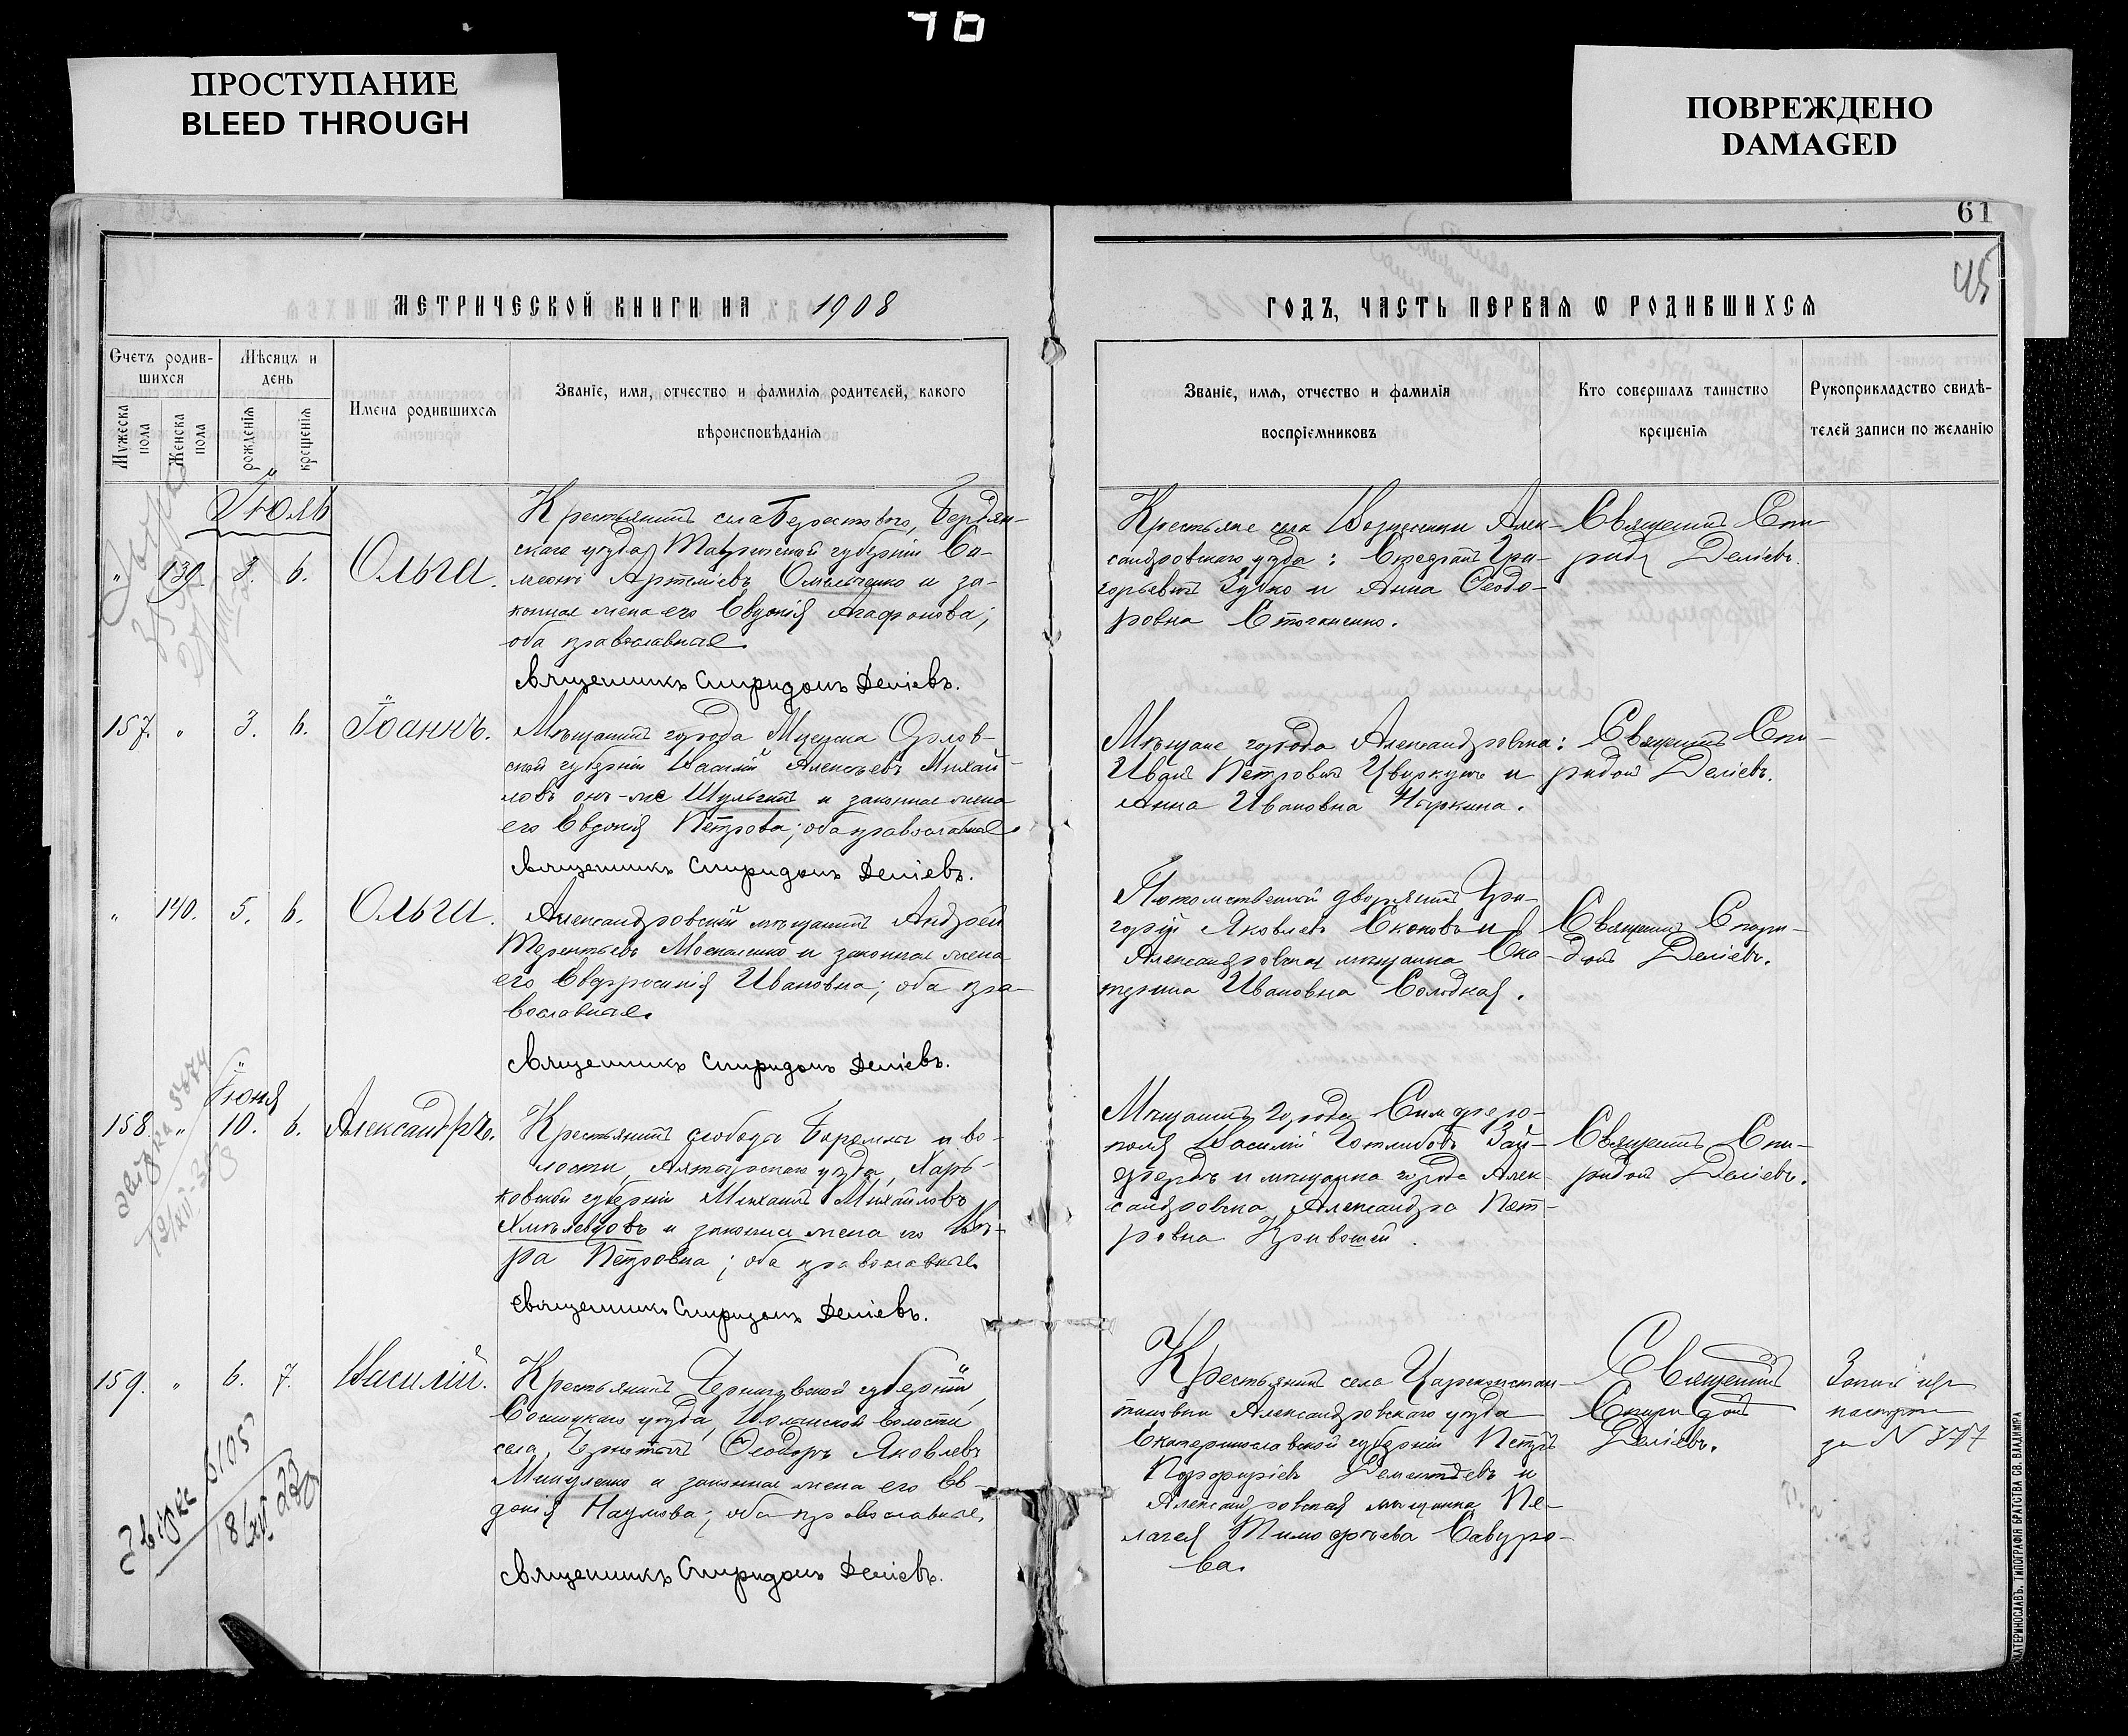 70
ПРОСТУПАНИЕ
BLEED THROUGH
ПОВРЕЖДЕНО
DAMAGED
61
45
МЕТРИЧЕСКОЙ КНИГИ НА 1908
ГОДЪ, ЧАСТЬ ПЕРВАЯ Ѡ РОДИВШИХСЯ
Счетъ родив-
шихся
Мѣсяцъ и
день
Мужеска
пола
Женска
пола
рожденія
крещенія
Имена родившихся
Званіе, имя, отчество и фамилія родителей, какого
вѣроисповѣданія
Званіе, имя, отчество и фамилія
воспріемниковъ
Кто совершалъ таинство
крещенія
Рукоприкладство свидѣ-
телей записи по желанію
Іюль
" 139. 3. 6. Ольга.
Крестьянинъ села Берестового, Бердян-
скаго уѣзда Таврической губерніи
Артеміевъ Омельченко и за-
конная жена его Евдокія Агафонова;
оба православные.
Священникъ Спиридонъ Деліевъ.
Крестьяне села Вознесенки Алек-
сандровскаго уѣзда: Гри-
горьевъ Зубко и Анна Ѳеодо-
ровна
Священникъ Спи-
рид. Деліевъ.
157. " 3. 6. Іоаннъ.
Мѣщанинъ города Мценска Орлов-
ской губерніи Василій Алексѣевъ Михай-
ловъ онъ-же Шульгинъ и законная жена
его Евдокія Петрова; оба православные.
Священникъ Спиридонъ Деліевъ.
Мѣщане города Александровска:
Иванъ Петровъ Цвиркунъ и
Анна Ивановна
Священникъ Спи-
ридонъ Деліевъ.
" 140. 5. 6. Ольга.
Александровскій мѣщанинъ Андрей
Терентьевъ Москаленко и законная жена
его Евфросинія Ивановна; оба пра-
вославные.
Священникъ Спиридонъ Деліевъ.
Потомственный дворянинъ Гри-
горій Яковлевъ и
Александровская мѣщанка Ека-
терина Ивановна Солодкая.
Священникъ Спири-
донъ Деліевъ.
Іюня
158. " 10. 6. Александръ.
Крестьянинъ слободы Боромли и во-
лости, Ахтырскаго уѣзда, Харь-
ковской губерніи Михаилъ Михайловъ
и законная жена его Вѣ-
ра Петровна; оба православные.
Священникъ Спиридонъ Деліевъ.
Мѣщанинъ города Симферо-
поля Василій Готлибовъ Зай-
фердъ и мѣщанка города Алек-
сандровска Александра Пет-
ровна Кривошей.
Священникъ Спи-
ридонъ Деліевъ.
159. " 6. 7. Василій.
Крестьянинъ Черниговской губерніи,
Сосницкаго уѣзда, Волынской волости
села Ѳеодоръ Яковлевъ
и законная жена его Ев-
докія Наумова; оба православные.
Священникъ Спиридонъ Деліевъ.
Крестьянинъ села Цареконстан-
тиновки Александровскаго уѣзда
Екатеринославской губерніи Петръ
Порфиріевъ Дементьевъ и
Александровская мѣщанка Пе-
лагея Тимофеева Савуро-
ва.
Священникъ
Спиридонъ
Деліевъ.
за № 377
ЕКАТЕРИНОСЛАВЪ. ТИПОГРАФІЯ БРАТСТВА СВ. ВЛАДИМІРА